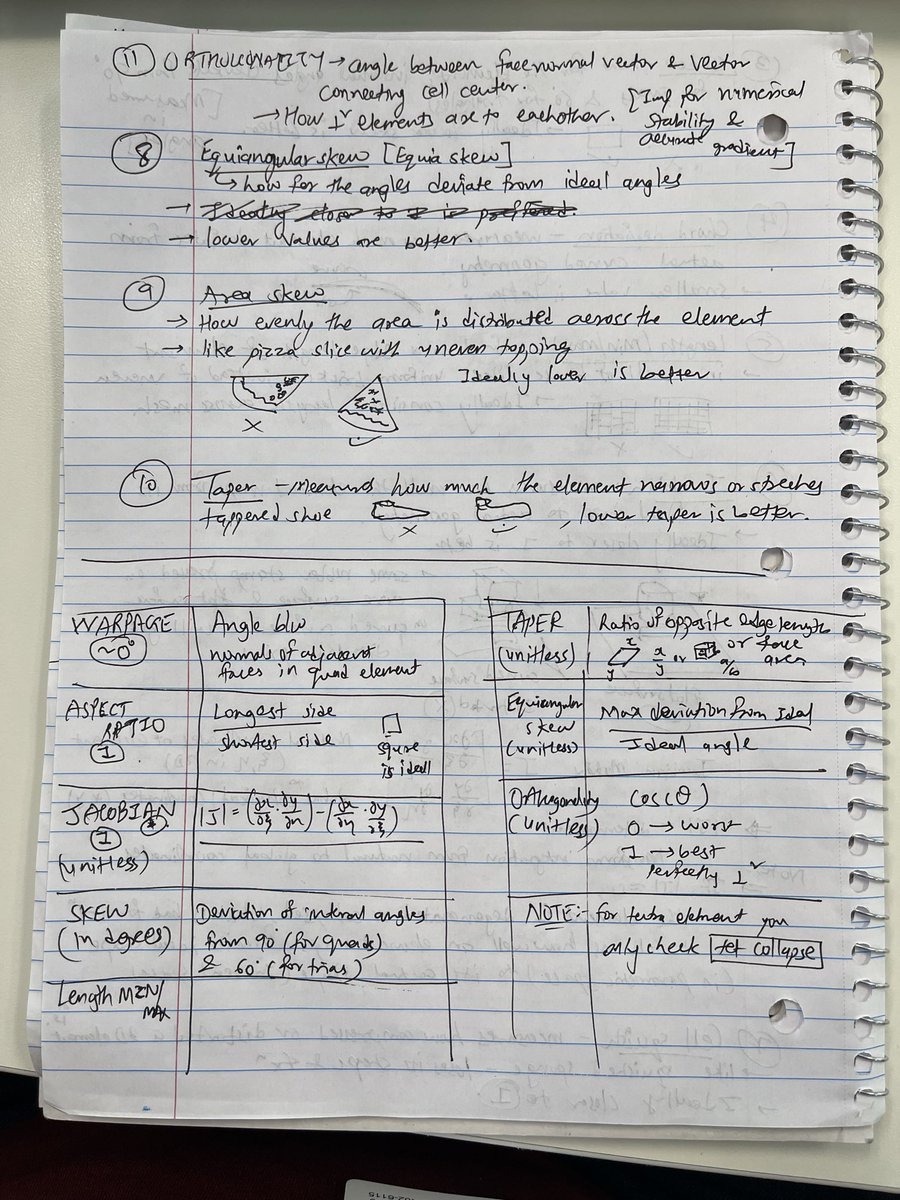 (11) ORTHOGONALITY → angle between face normal vector & vector
connecting cell center.
→ How ⊥r elements are to eachother. [Imp for numerical
stability &
accurate gradient]
(8) Equiangular skew [Equia skew]
↳ how far the angles deviate from ideal angles
→ Ideally closer to 1 is preffered.
→ lower values are better.
(9) Area skew
→ How evenly the area is distributed across the element
→ like pizza slice with uneven topping
Ideally lower is better
(10) Taper - measures how much the element narrows or streches
tappered shoe , lower taper is better.
WARPAGE
~0°
Angle b/w
normals of adjacent
faces in quad element
ASPECT
RATIO
(1)
Longest side
shortest side
square
is ideal
JACOBIAN
(1)
(unitless)
|J| = (∂x/∂ξ · ∂y/∂η) - (∂x/∂η · ∂y/∂ξ)
SKEW
(In degrees)
Deviation of internal angles
from 90° (for quads)
& 60° (for trias)
Length MIN/
MAX
TAPER
(unitless)
Ratio of opposite edge length
x
y
x/y or
or face
area
a/b
Equiangular
skew
(unitless)
Max deviation from Ideal
Ideal angle
Orthogonality
(unitless)
cos(θ)
0 → worst
1 → best
perfectly ⊥r
NOTE:- for tetra element you
only check tet collapse